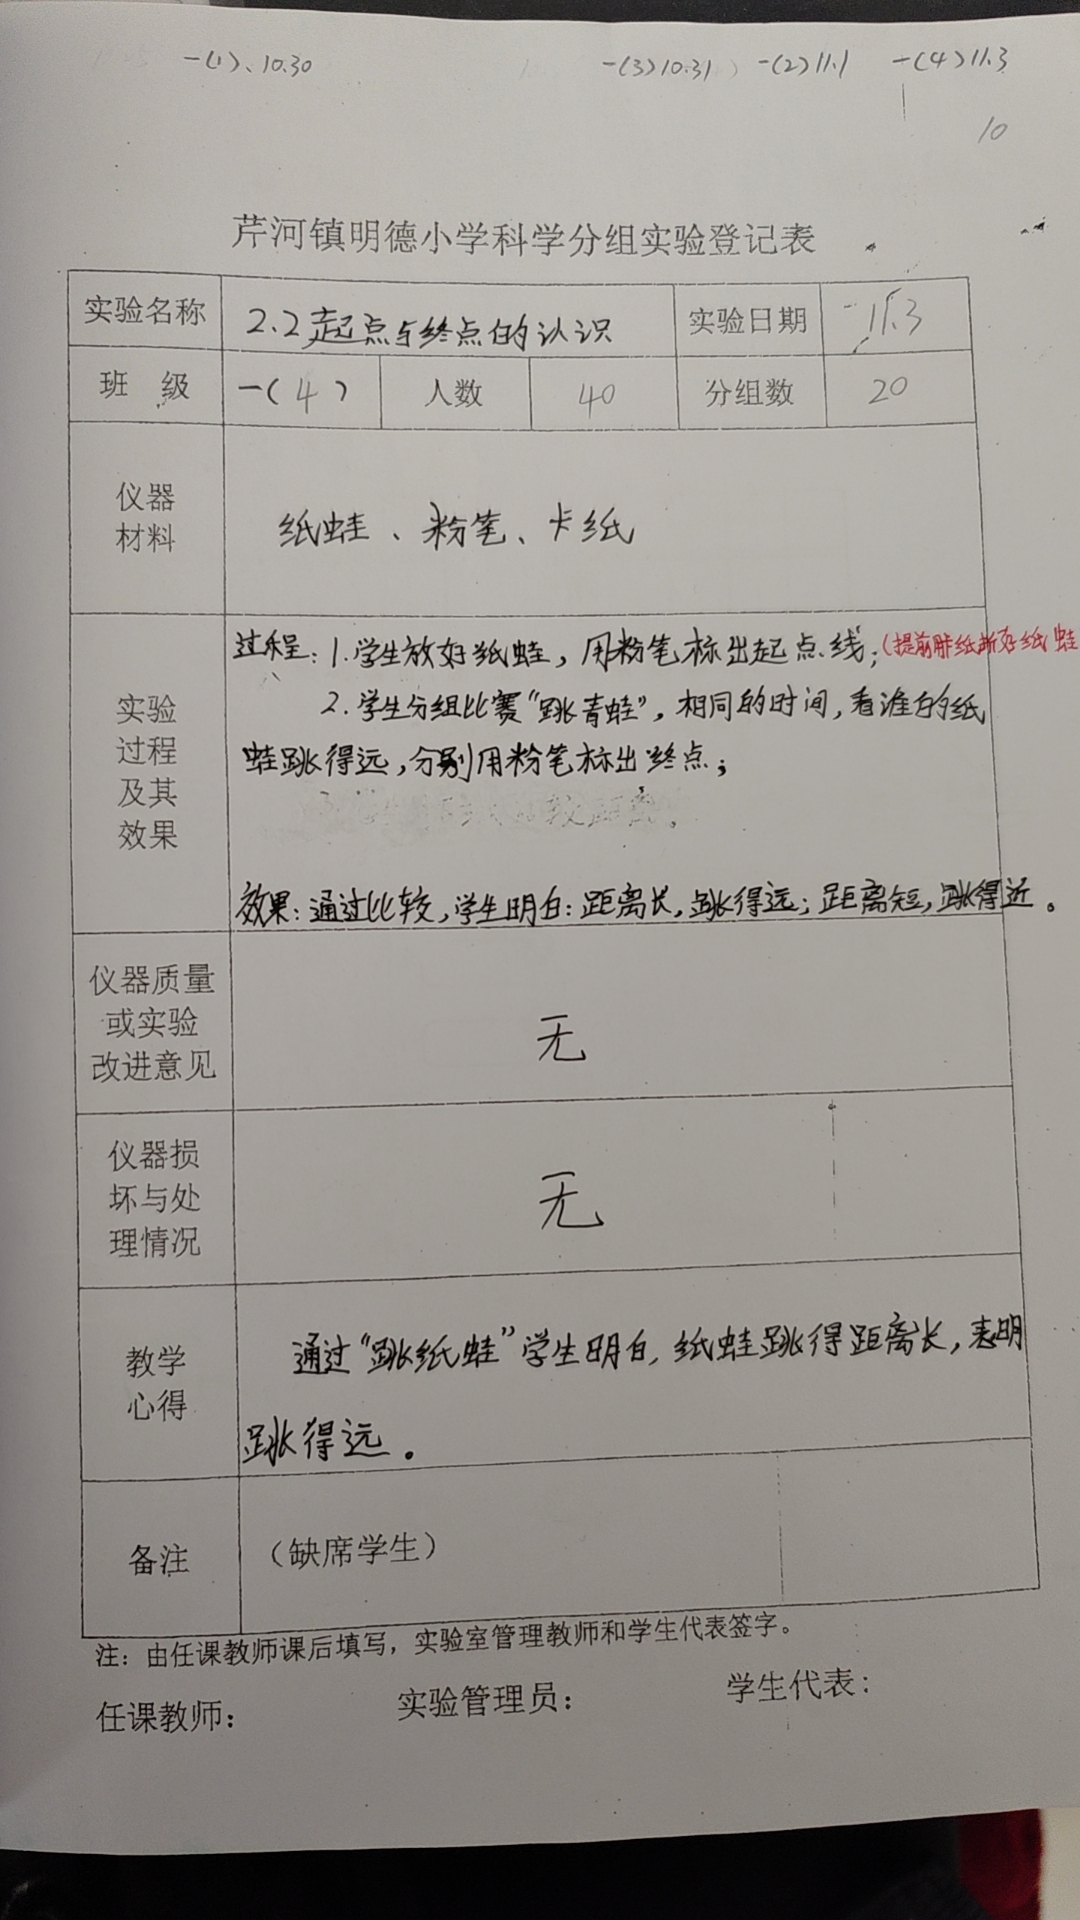 一(1)、10.30 一(3)10.31 一(2)11.1 一(4)11.3
10
芹河镇明德小学科学分组实验登记表
实验名称 2.2起点与终点的认识 实验日期 11.3
班 级 一(4) 人数 40 分组数 20
仪器
材料
纸蛙、粉笔、卡纸
实验
过程
及其
效果
过程:1.学生放好纸蛙,用粉笔标出起点线;(提前用纸折好纸蛙
2.学生分组比赛“跳青蛙”,相同的时间,看谁的纸
蛙跳得远,分别用粉笔标出终点;
效果:通过比较,学生明白:距离长,跳得远;距离短,跳得近。
仪器质量
或实验
改进意见
无
仪器损
坏与处
理情况
无
教学
心得
通过“跳纸蛙”学生明白,纸蛙跳得距离长,表明
跳得远。
备注 (缺席学生)
注:由任课教师课后填写,实验室管理教师和学生代表签字。
任课教师: 实验管理员: 学生代表: